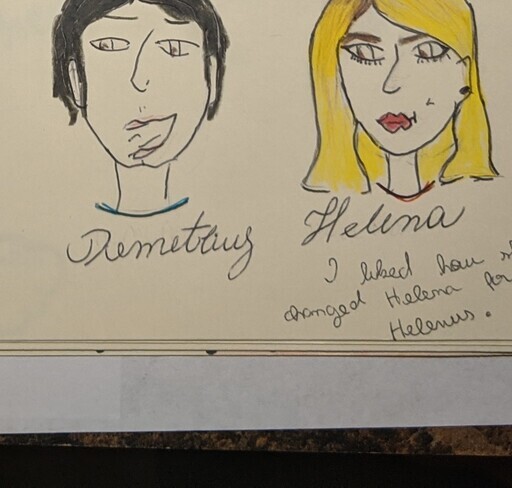 Demetrius
Helena
I liked how
changed Helena for
Helenus.